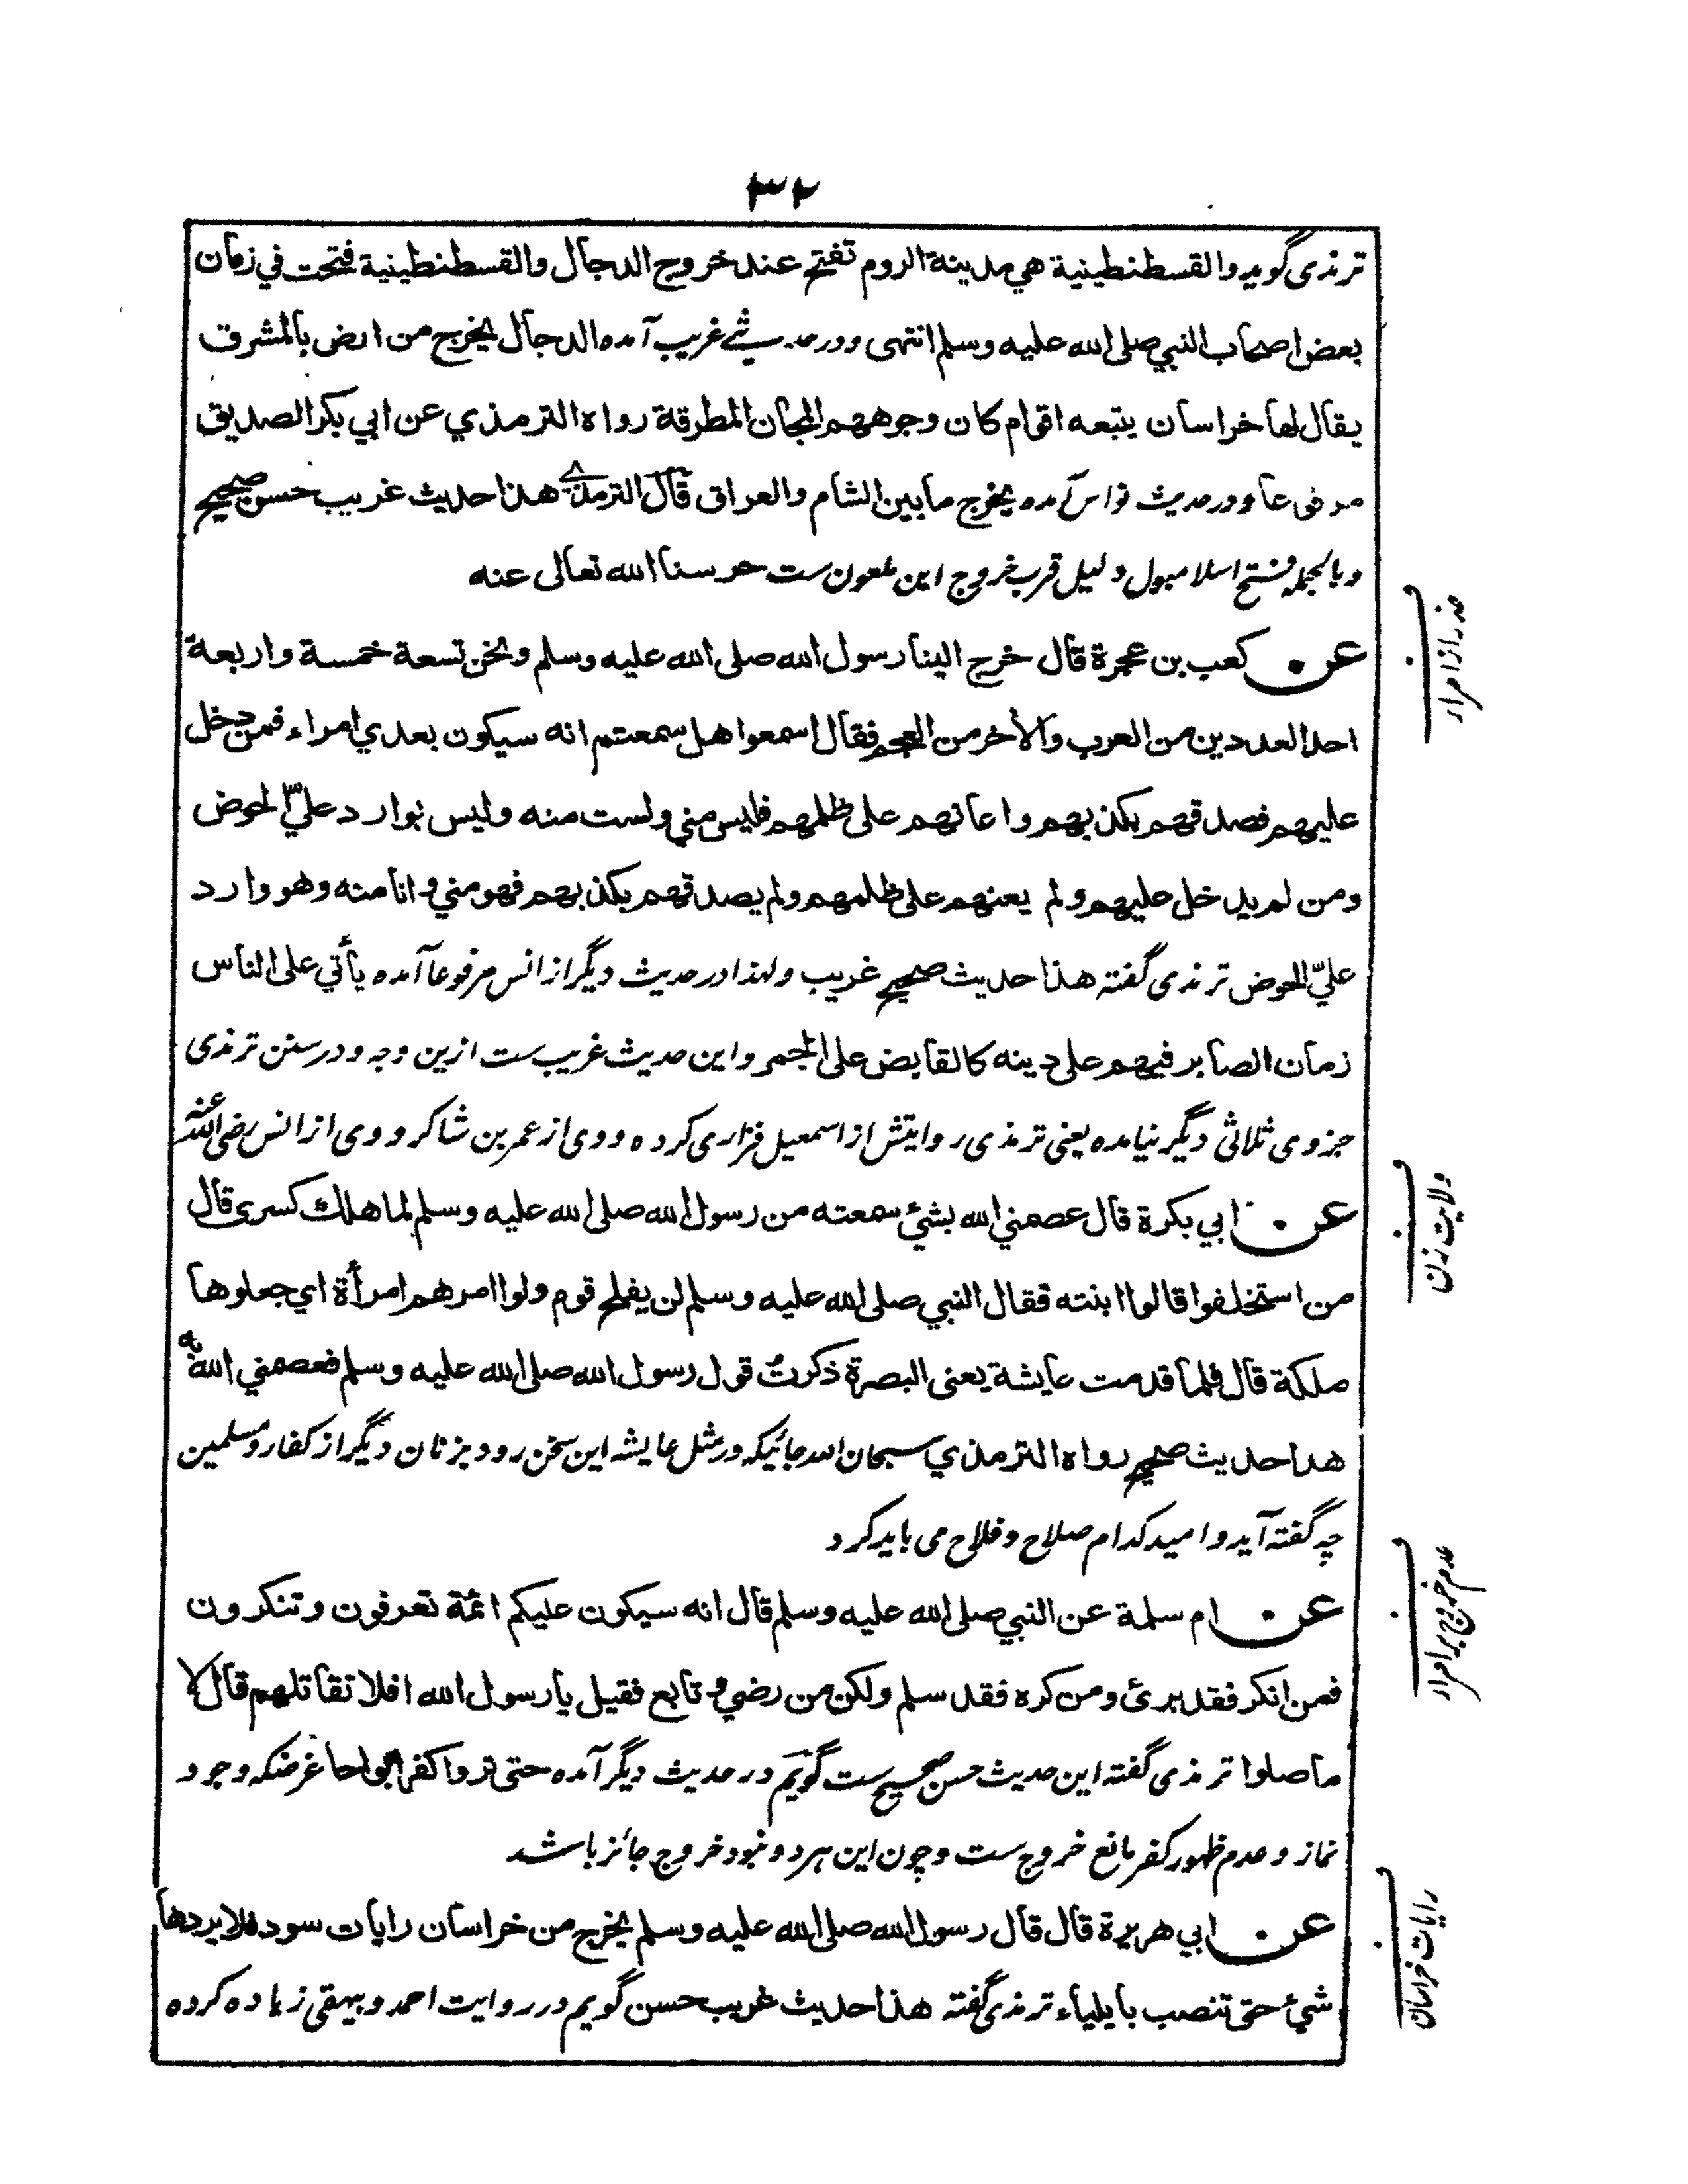 ٣٢
ترمذی گوید والقسطنطينية هي مدينة الروم تفتح عند خروج الدجال والقسطنطينية فتحت في زمان
بعض اصحاب النبي صلى الله عليه وسلم انتهى ودر حديثے غریب آمده الدجال يخرج من ارض بالمشرق
يقال لها خراسان يتبعه اقوام كان وجوههم المجان المطرقة رواه الترمذي عن ابي بكر الصديق
مرفوعا ودر حدیث نواس آمده يخرج ما بين الشام والعراق قال الترمذي هذا حديث غريب حسن صحيح
وبالجمله فتح اسلامبول دلیل قرب خروج این ملعون ست حرسنا الله تعالى عنه
عن كعب بن عجرة قال خرج الينا رسول الله صلى الله عليه وسلم ونحن تسعة خمسة واربعة
احد العددين من العرب والأخر من العجم فقال اسمعوا هل سمعتم انه سيكون بعدي امراء فمن دخل
عليهم فصدقهم بكذبهم واعانهم على ظلمهم فليس مني ولست منه وليس بوارد عليّ الحوض
ومن لم يدخل عليهم ولم يعنهم على ظلمهم ولم يصدقهم بكذبهم فهو مني وانا منه وهو وارد
عليّ الحوض ترمذی گفته هذا حديث صحيح غريب ولهذا در حدیث دیگر از انس مرفوعا آمده يأتي على الناس
زمان الصابر فيهم على دينه كالقابض على الجمر واین حدیث غریب ست ازین وجه ودر سنن ترمذی
جزوی ثلاثی دیگر نیامده یعنی ترمذی روایتش از اسمعیل فزاری کرده ووی از عمر بن شاکر ووی از انس رضی الله عنه
عن ابي بكرة قال عصمني الله بشئ سمعته من رسول الله صلى الله عليه وسلم لما هلك كسرى قال
من استخلفوا قالوا ابنته فقال النبي صلى الله عليه وسلم لن يفلح قوم ولوا امرهم امرأة اي جعلوها
ملكة قال فلما قدمت عايشة يعنى البصرة ذكرتُ قول رسول الله صلى الله عليه وسلم فعصمني الله به
هذا حديث صحيح رواه الترمذي سبحان الله جائیکه در مثل عایشه این سخن رود بزنان دیگر از کفار ومسلمین
چه گفته آید وامید کدام صلاح وفلاح می باید کرد
عن ام سلمة عن النبي صلى الله عليه وسلم قال انه سيكون عليكم ائمة تعرفون وتنكرون
فمن انكر فقد برئ ومن كره فقد سلم ولكن من رضي و تابع فقيل يا رسول الله افلا نقاتلهم قال لا
ما صلوا ترمذی گفته این حدیث حسن صحیح ست گویم در حدیث دیگر آمده حتى تروا كفرا بواحا غرضکه وجود
نماز وعدم ظهور کفر مانع خروج ست وچون این هر دو نبود خروج جائز باشد
عن ابي هريرة قال قال رسول الله صلى الله عليه وسلم يخرج من خراسان رايات سود فلا يردها
شئ حتى تنصب بايلياء ترمذی گفته هذا حديث غريب حسن گویم در روایت احمد وبیهقی زیاده کرده
حذر از امراء
ولایت زن
عدم خروج بر امراء
رایات خراسان